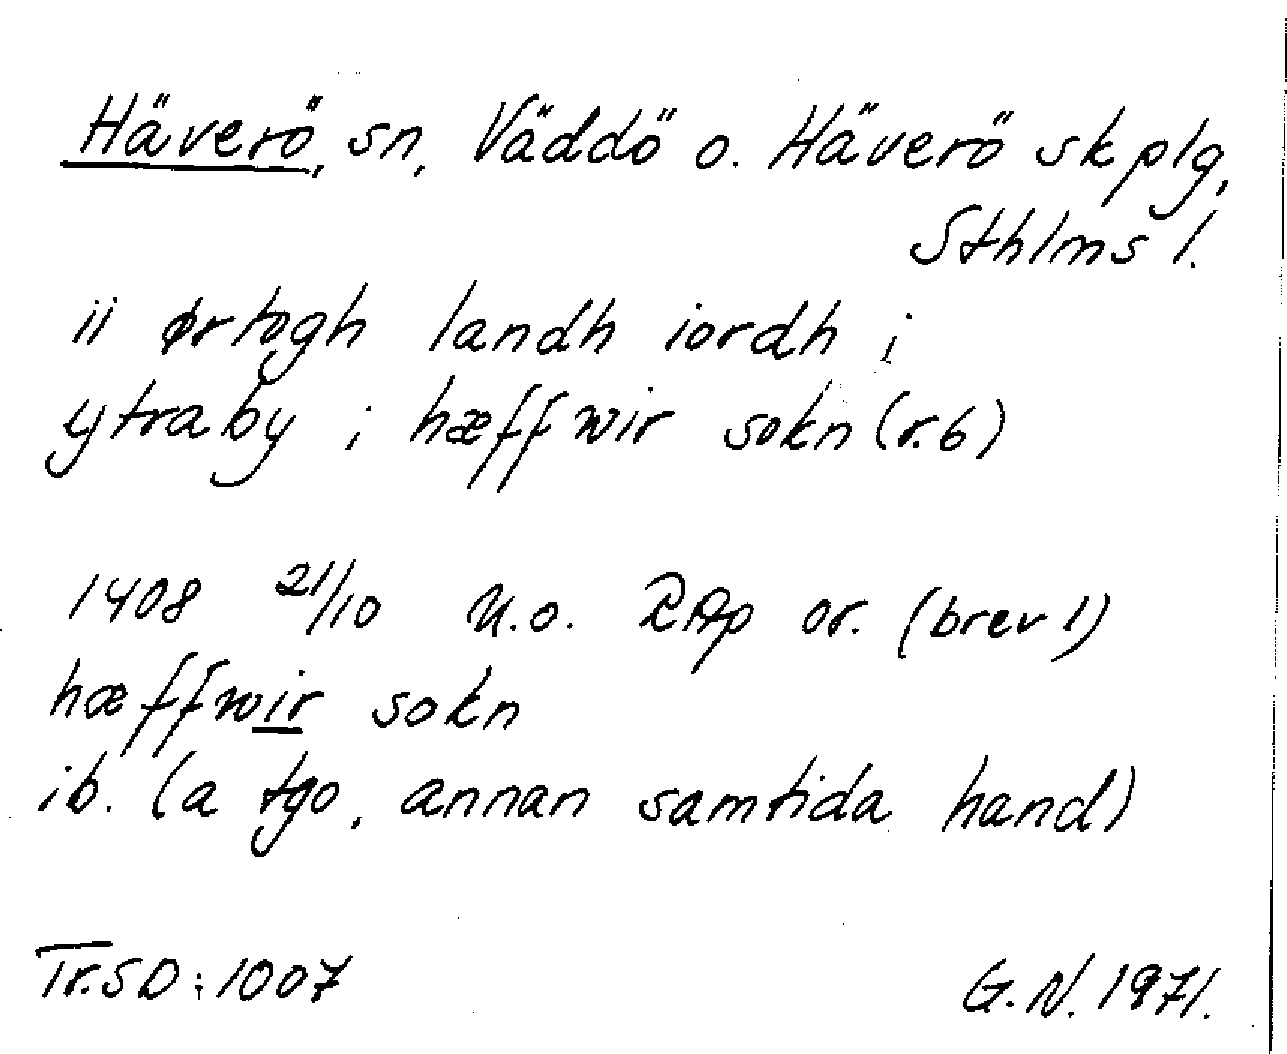 Häverö, sn, Väddö o. Häverö skplg,
Sthlms l.
ii ørtogh landh iordh i
ytraby i hæffwir sokn (r. 6)
1408 21/10 U.o. RAp or. (brev 1)
hæffwir sokn
ib. (a tgo, annan samtida hand)
Tr. SD: 1007
G.N. 1971.